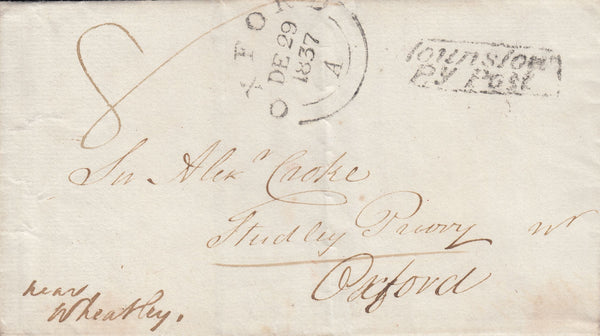 8
OXFORD
DE 29
1837
A
Hounslow
Py Post
Sir Alexr Croke
Studley Priory nr
Oxford
near
Wheatley.